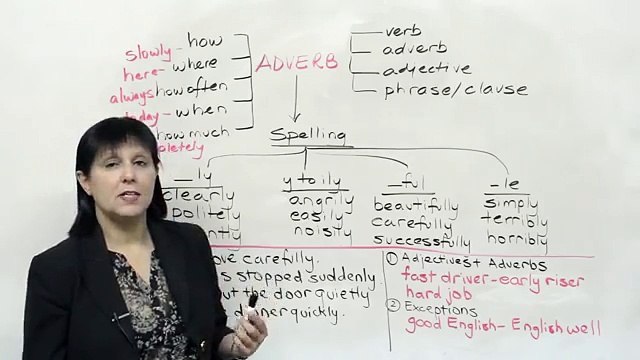 slowly - how
here - where
always how often
today - when
how much
pletely
ADVERB
verb
adverb
adjective
phrase/clause
Spelling
_ly
clearly
politely
ntly
y to ily
angrily
easily
noisily
_ful
beautifully
carefully
successfully
_le
simply
terribly
horribly
ove carefully.
s stopped suddenly.
ut the door quietly
dinner quickly.
① Adjectives + Adverbs
fast driver - early riser
hard job
② Exceptions
good English - English well